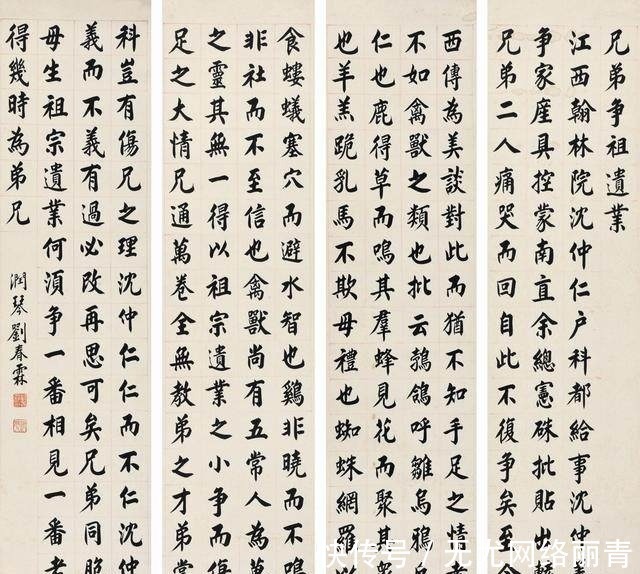 兄弟争祖遺業
江西翰林院沈仲仁户科都給事沈仲義
争家産具控蒙南直余總憲硃批貼出
兄弟二人痛哭而回自此不復争矣至今
西傳為美談對此而猶不知手足之情者
不如禽獸之類也批云鵓鴿呼雛烏鴉
仁也鹿得草而鳴其羣蜂見花而聚其
也羊羔跪乳馬不欺毋禮也蜘蛛網羅以
食螻蟻塞穴而避水智也鷄非曉而不鳴
非社而不至信也禽獸尚有五常人為萬
之靈其無一得以祖宗遺業之小争而
足之大情兄通萬卷全無教弟之才弟
科豈有傷兄之理沈仲仁仁而不仁沈仲
義而不義有過必改再思可矣兄弟同胞
毋生祖宗遺業何湏争一番相見一番老
得幾時為弟兄
潤琴劉春霖
快传号/无尤网络丽青